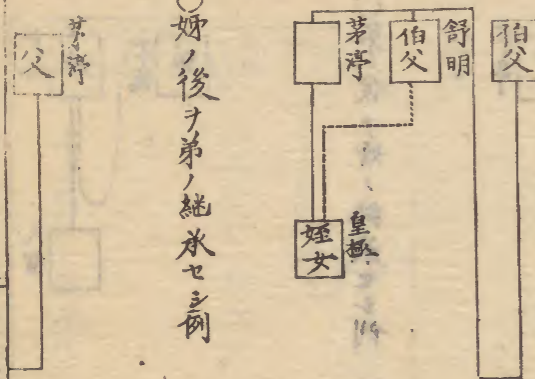 伯父
舒明
伯父
茅渟
皇極
姪女
○姉ノ後ヲ弟ノ継承セシ例
茅渟
父